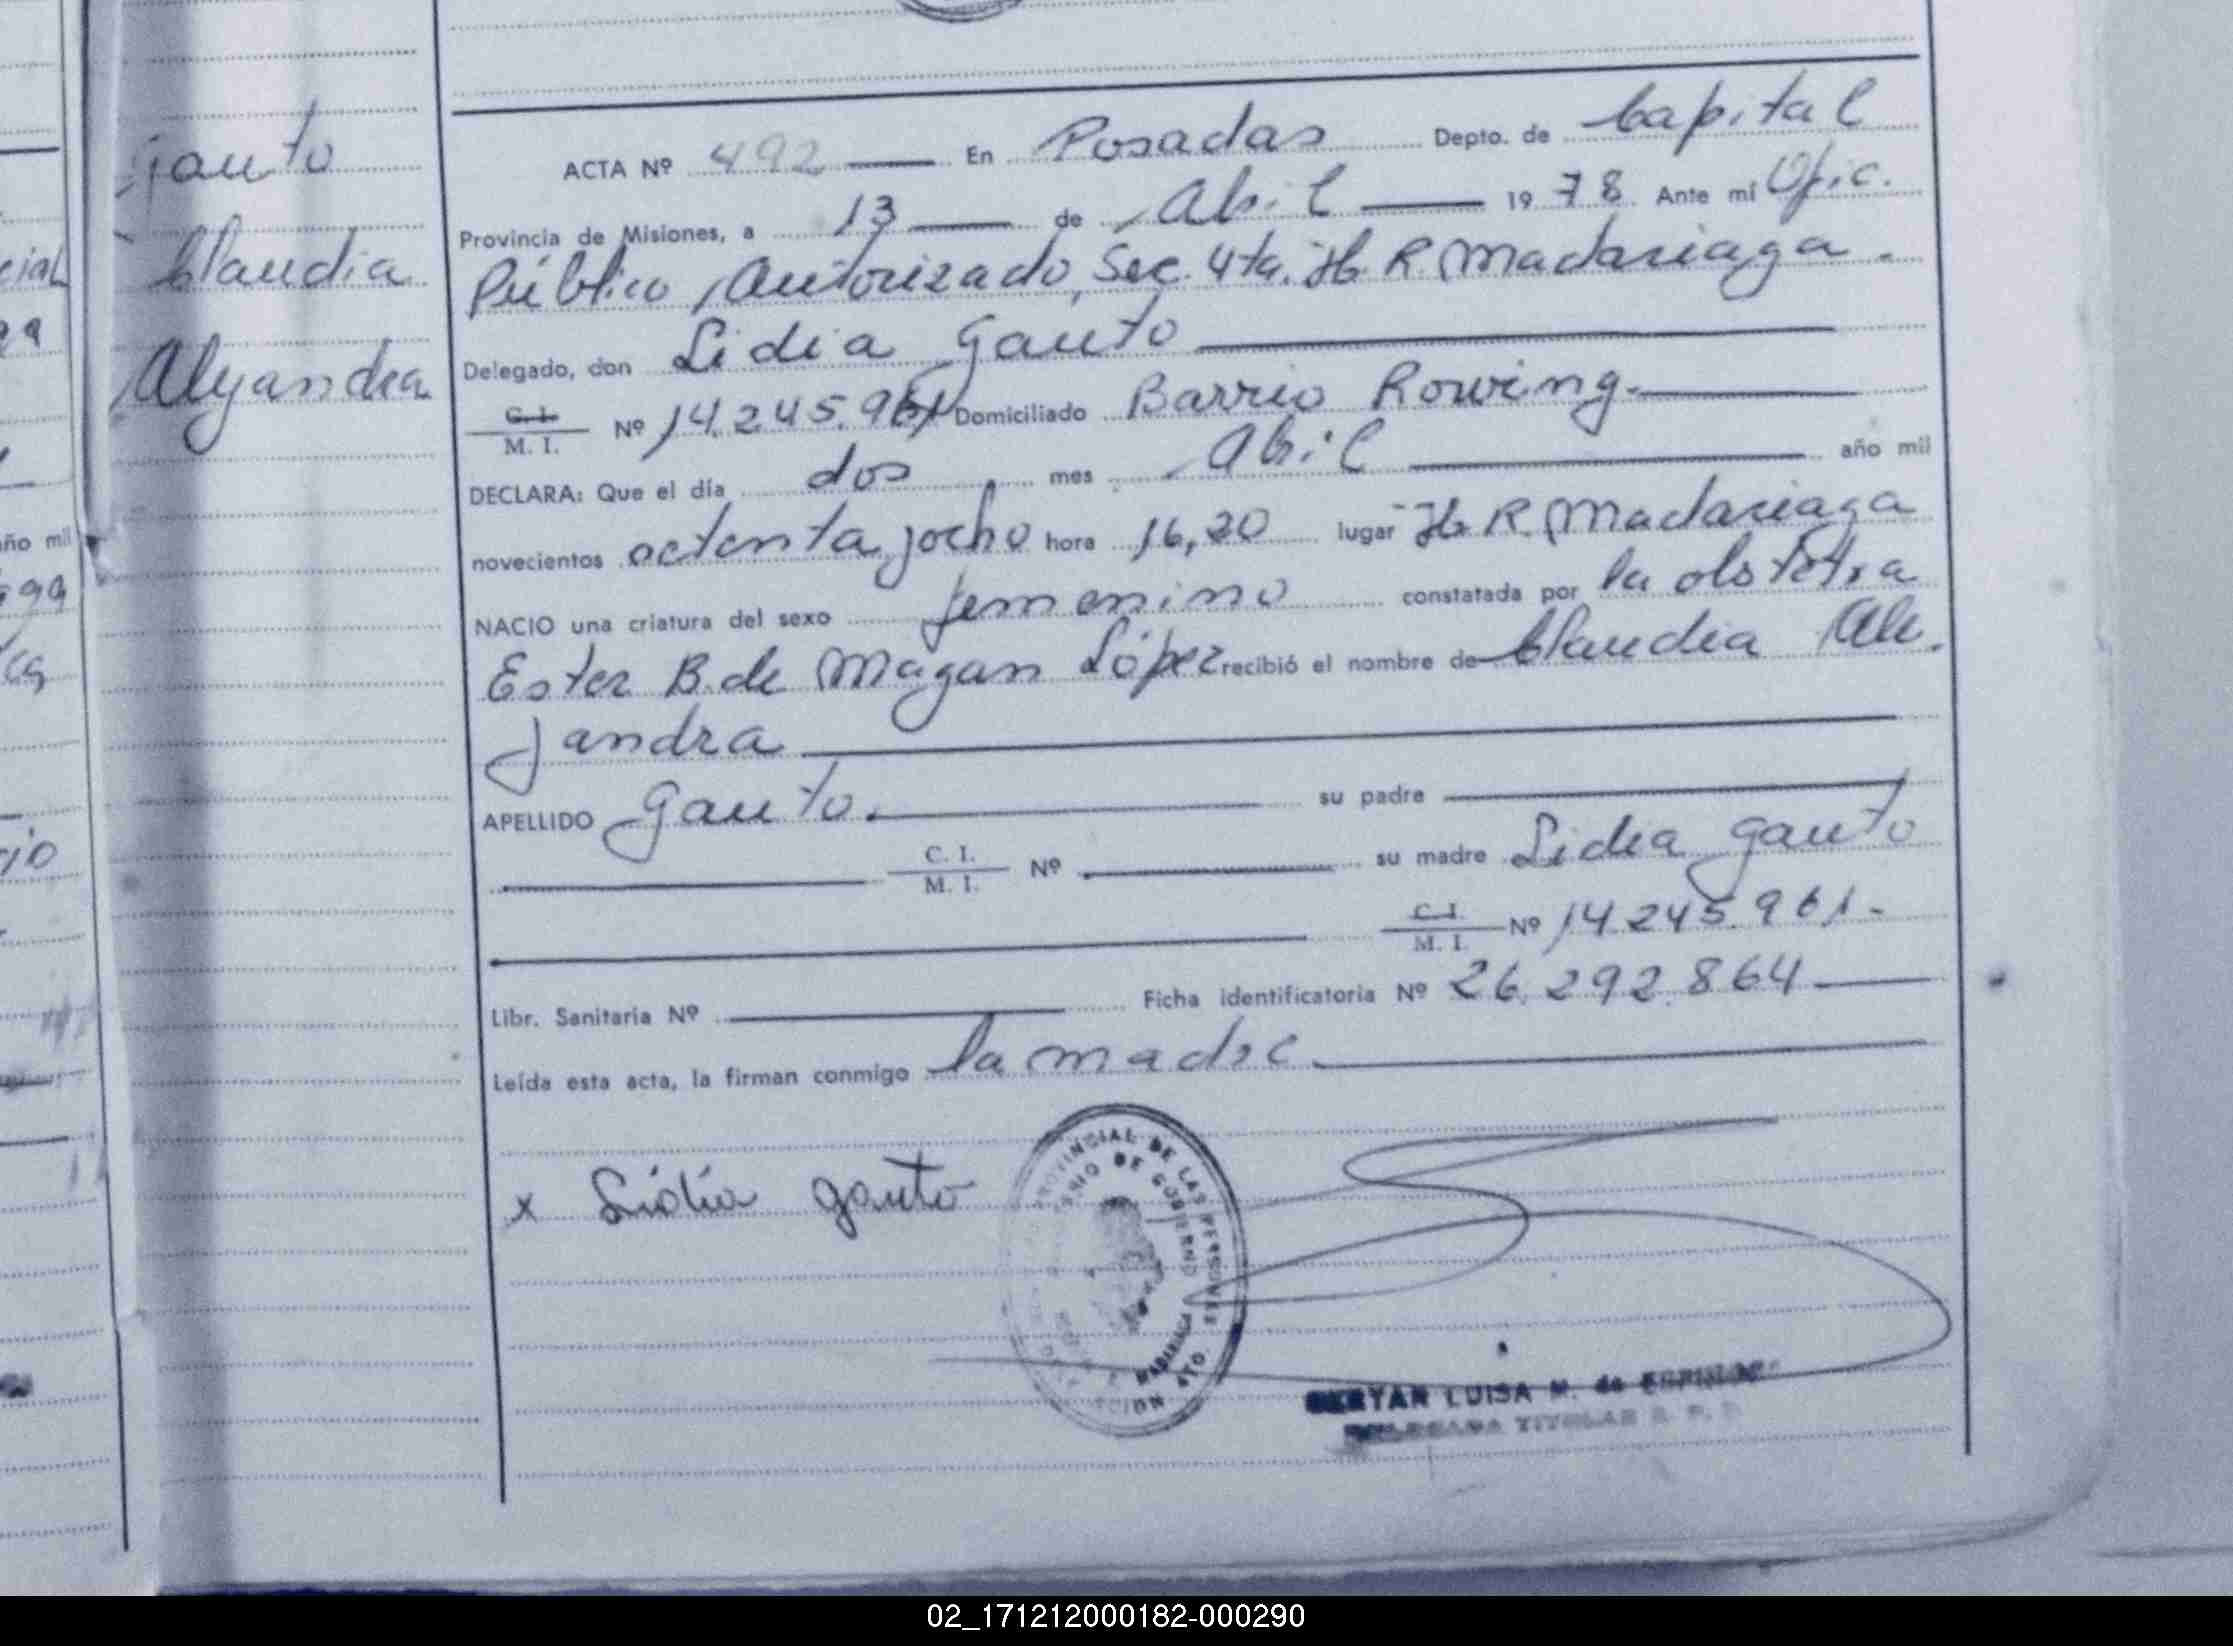 ACTA Nº 492 En Posadas Depto. de Capital
Provincia de Misiones, a 13 de Abril 1978 Ante mi Ofic.
Público Autorizado, Sec. 4ta. H. R. Madariaga.
Delegado, don Lidia Gauto
C. I. / M. I. Nº 14.245.961 Domiciliado Barrio Rowing.
DECLARA: Que el día dos mes Abril año mil
novecientos octenta y ocho hora 16,20 lugar H R. Madariaga
NACIO una criatura del sexo femenino constatada por la obstetra
Ester B. de Magan López recibió el nombre de Claudia Ale
jandra
APELLIDO Gauto. su padre
C. I. / M. I. Nº su madre Lidia Gauto
C. I. / M. I. Nº 14.245.961.-
Libr. Sanitaria Nº Ficha identificatoria Nº 26.292.864
Leída esta acta, la firman conmigo la madre
x Lidia gauto
PROVINCIAL DE LAS PERSONAS
DE GOBIERNO
MADARIAGA
4TO.
LUISA M. de
DELEGADA TITULAR R. P.
Gauto
Claudia
Alejandra
cial
ño mil
02_171212000182-000290